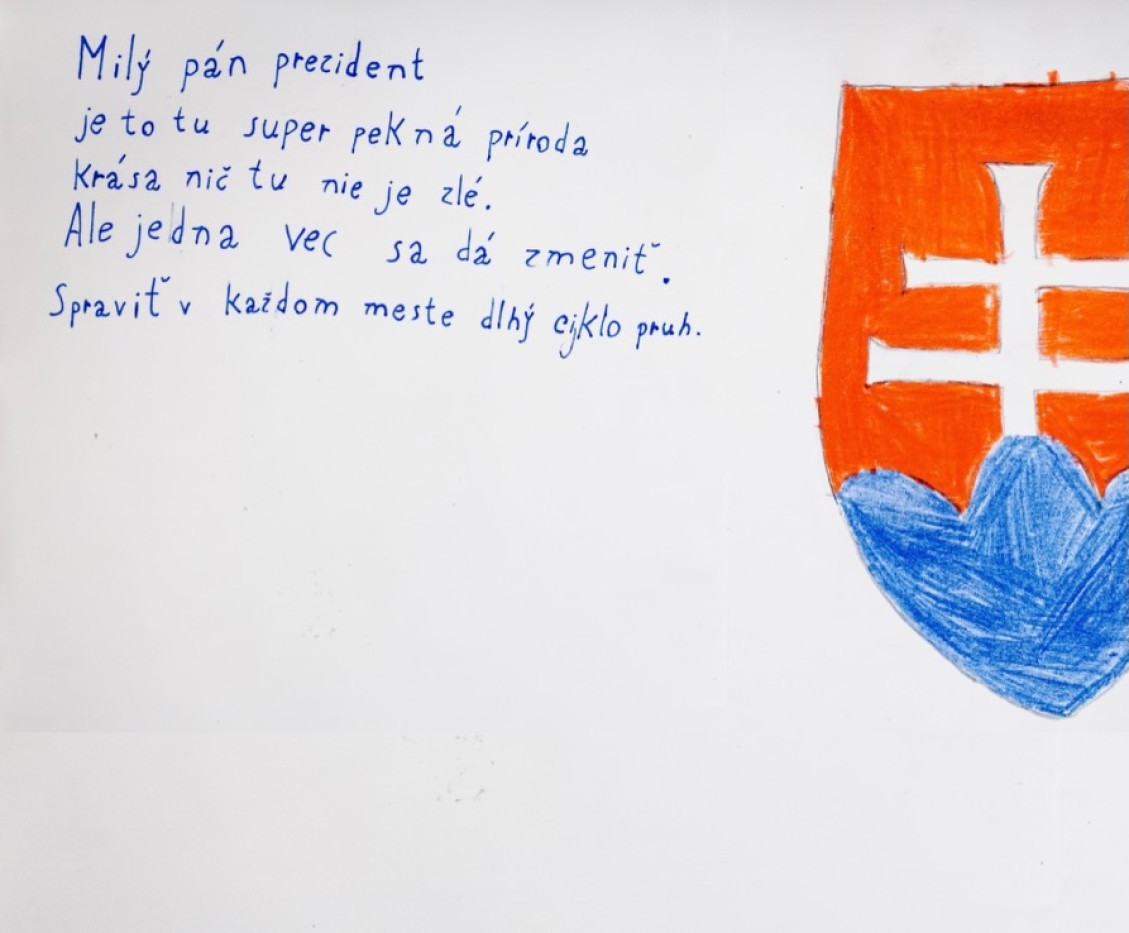 Milý pán prezident
je to tu super pekná príroda
krása nič tu nie je zlé.
Ale jedna vec sa dá zmeniť.
Spraviť v každom meste dlhý cyklo pruh.